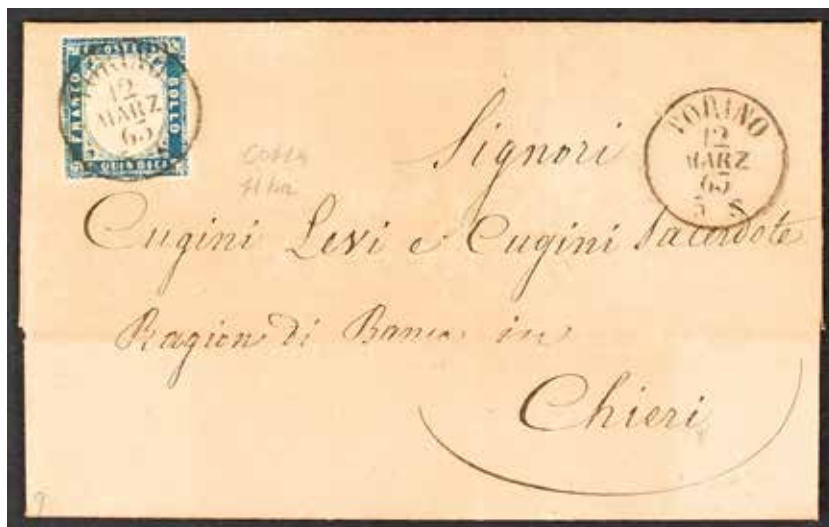 FRANCO POSTE BOLLO
QUINDICI
TORINO
12
MARZ
63
TORINO
12
MARZ
63
5 S
Signori
Cugini Levi e Cugini Sacerdote
Ragion di Banca in
Chieri
9